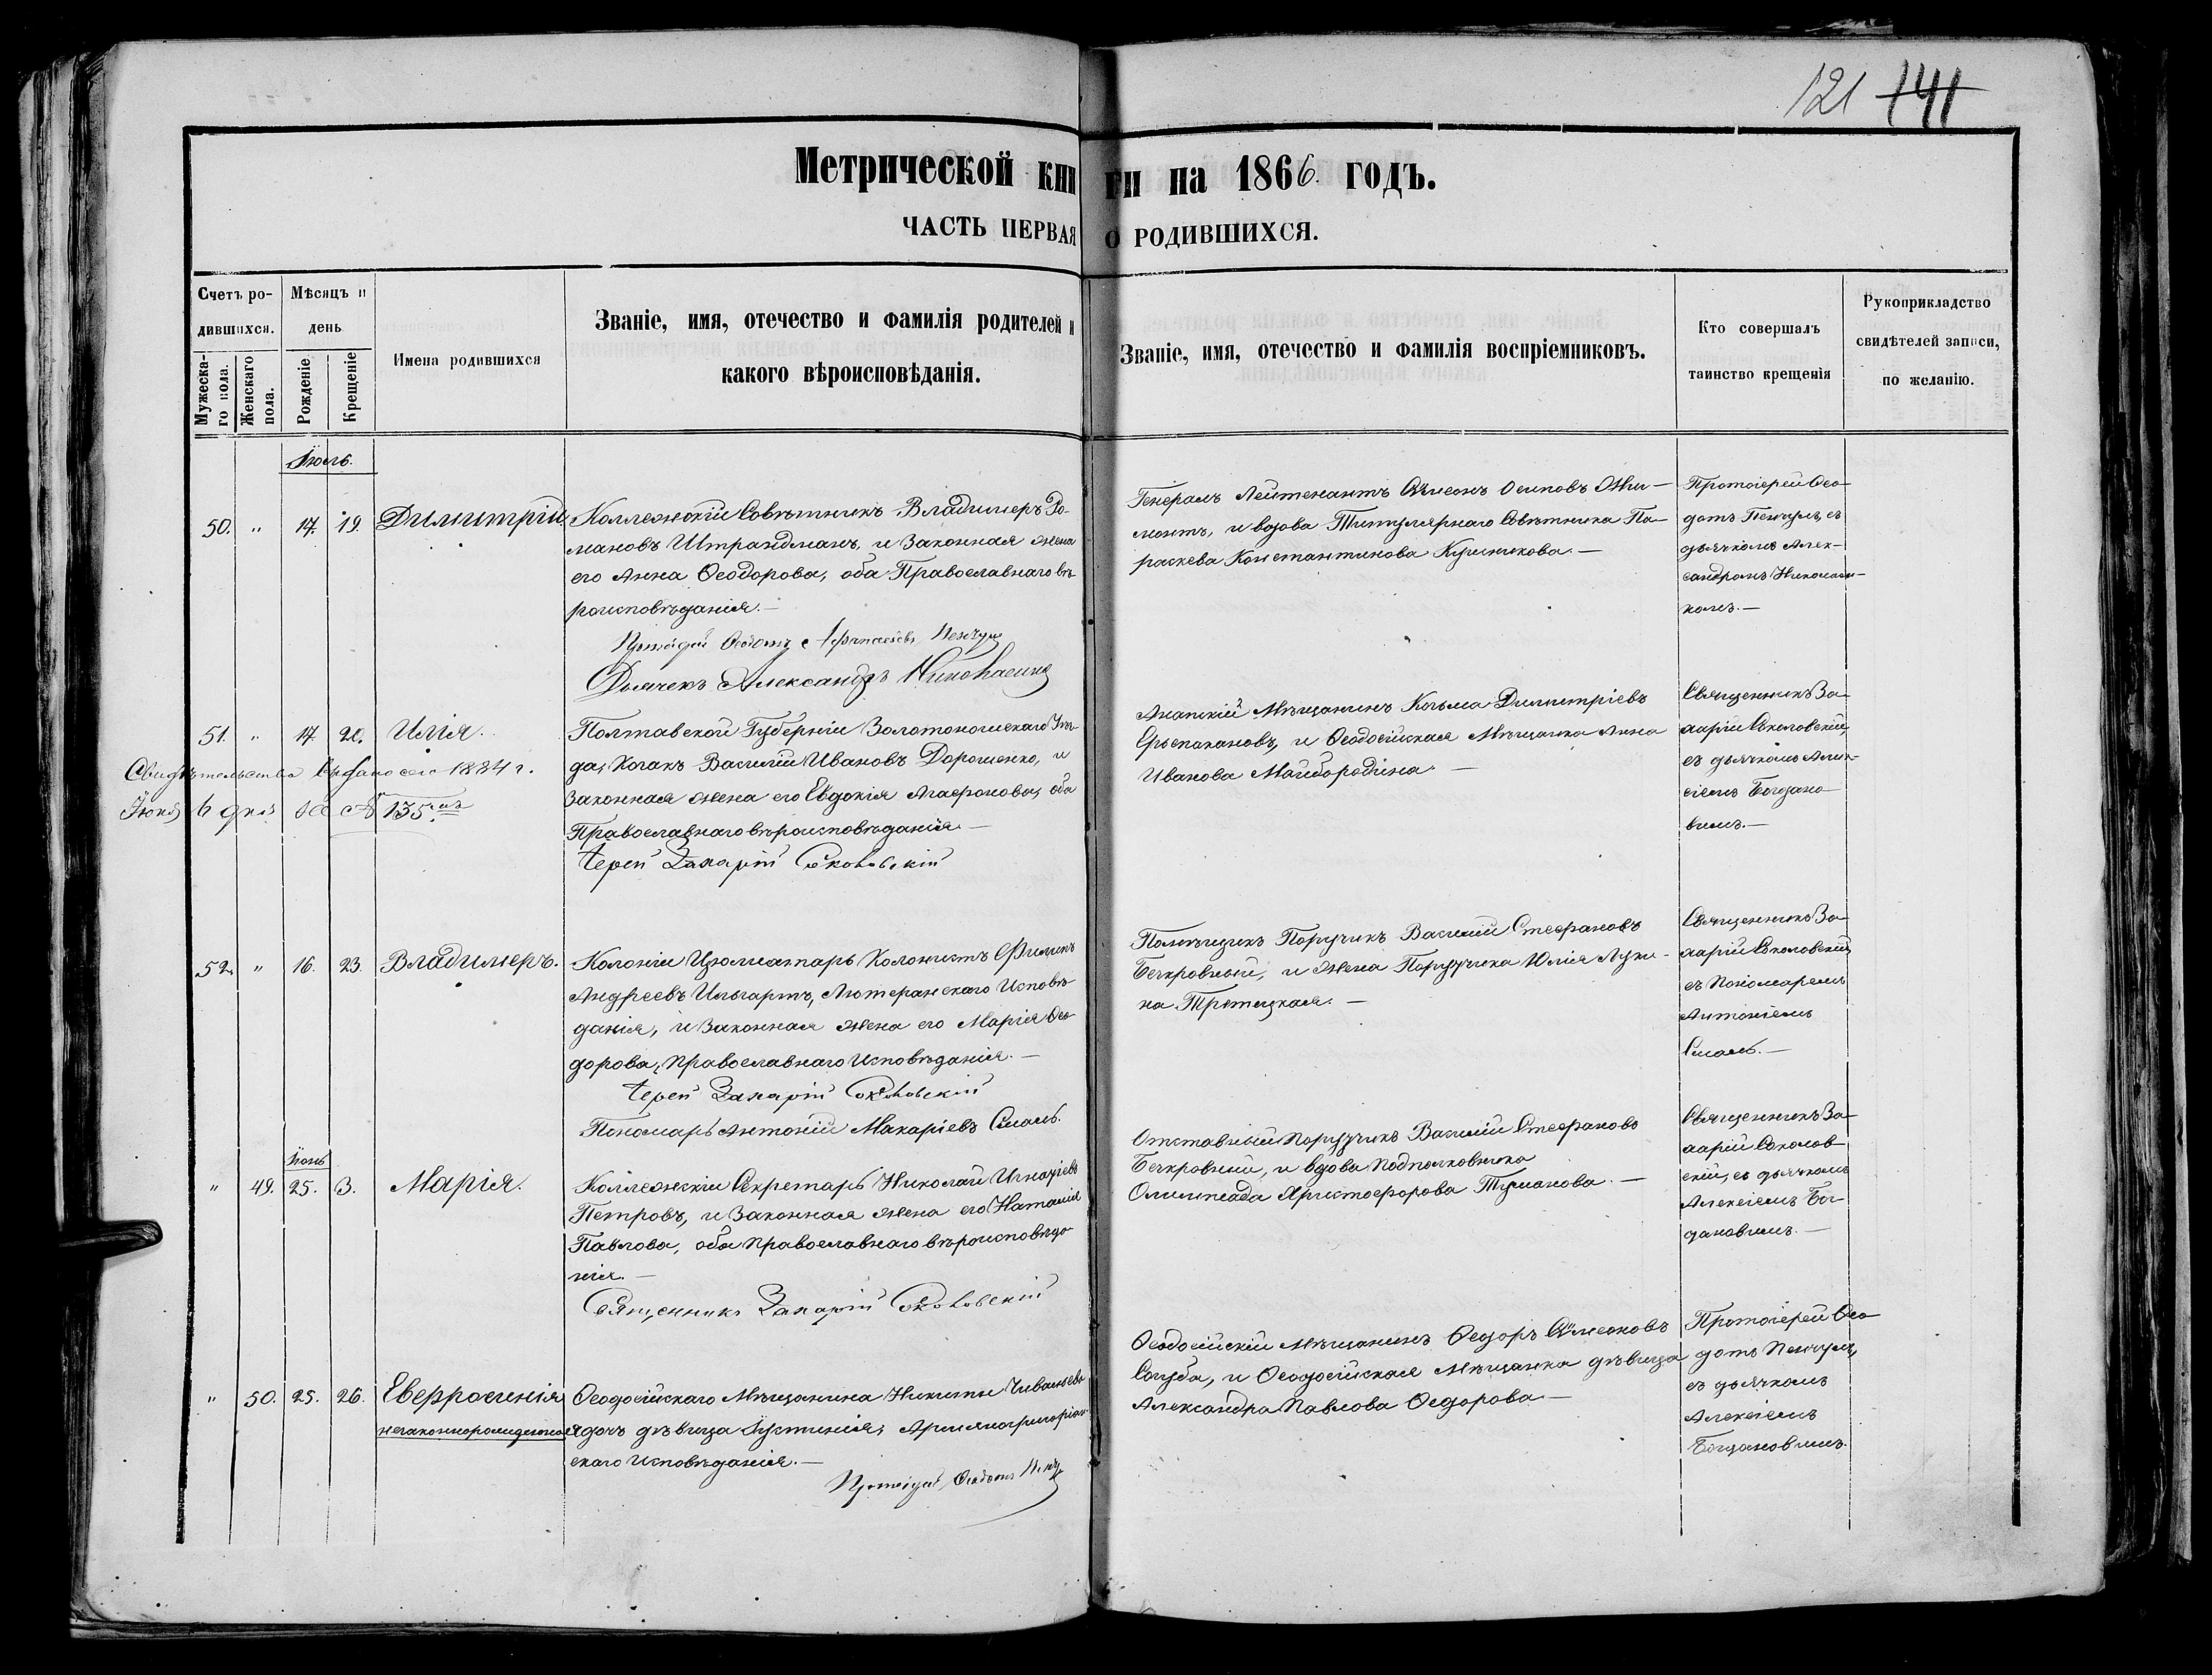 121 141
Метрической книги на 1866. годъ.
ЧАСТЬ ПЕРВАЯ О РОДИВШИХСЯ.
Счетъ родившихся.
Мужескаго пола.
Женскаго пола.
Мѣсяцъ и день
Рожденіе
Крещеніе
Имена родившихся
Званіе, имя, отечество и фамилія родителей и
какого вѣроисповѣданія.
Званіе, имя, отечество и фамилія воспріемниковъ.
Кто совершалъ
таинство крещенія
Рукоприкладство
свидѣтелей записи,
по желанію.
Іюль.
50. " 17. 19. Димитрій
Коллежскій Совѣтникъ Владимеръ Ро-
мановъ Штрандманъ, и законная жена
его Анна Ѳеодорова, оба Православнаго вѣ-
роисповѣданія.—
Протоіерей Ѳеодотъ Пенчулъ
Дьячекъ Александръ
Генералъ Лейтенантъ Сѵмеонъ Осиповъ
и вдова Титулярнаго Совѣтника Па-
раскева Константинова Курникова.—
Протоіерей Ѳео-
дотъ Пенчулъ, съ
дьячкомъ Алек-
сандромъ
51. " 17. 20. Илія.
Свидѣтельство выдано сего 1884 г.
Іюня 6 дня за № 135
Полтавской Губерніи Золотоношскаго Уѣз-
да, Козакъ Василій Ивановъ Дорошенко, и
Законная жена его Евдокія Агафонова, оба
Православнаго вѣроисповѣданія.—
Іерей Захарій Соколовскій
Анапскій Мѣщанинъ Козьма Димитріевъ
и Ѳеодосійская Мѣщанка Анна
Иванова Майбородина.—
Священникъ За-
харій Соколовскій,
съ дьячкомъ Алек-
сіемъ Богдано-
вимъ.—
52. " 16. 23. Владимеръ.
Колоніи Цюрихталь Колонистъ Филипъ
Андреевъ Лютеранскаго Исповѣ-
данія, и Законная жена его Марія Ѳео-
дорова, Православнаго Исповѣданія.—
Іерей Захарій Соколовскій
Пономарь Антоній Макаріевъ
Помѣщикъ Поручикъ Василій Стефановъ
Безкровный, и жена Поручика Юлія Луки-
на
Священникъ За-
харій Соколовскій
съ Пономаремъ
Антоніемъ
Іюнь
" 49. 25. 3. Марія.
Коллежскій Секретарь Николай Игнатіевъ
Петровъ, и Законная жена его Наталія
Павлова, оба Православнаго вѣроисповѣда-
нія.—
Священникъ Захарій Соколовскій
Отставный Поручикъ Василій Стефановъ
Безкровный, и вдова Подполковника
Олимпіада Христофорова Туманова.—
Священникъ За-
харій Соколов-
скій, съ дьячкомъ
Алексіемъ Бог-
дановимъ.—
" 50. 25. 26. Евфросинія
незаконнорожденная
Ѳеодосійскаго Мѣщанина Никиты
дочь дѣвица Іустинія, Армяногригоріан-
скаго Исповѣданія.—
Протоіерей Ѳеодотъ Пенчулъ
Ѳеодосійскій Мѣщанинъ Ѳеодоръ Сѵмеоновъ
и Ѳеодосійская Мѣщанка дѣвица
Александра Павлова Ѳедорова.—
Протоіерей Ѳео-
дотъ Пенчулъ,
съ дьячкомъ
Алексіемъ
Богдановимъ.